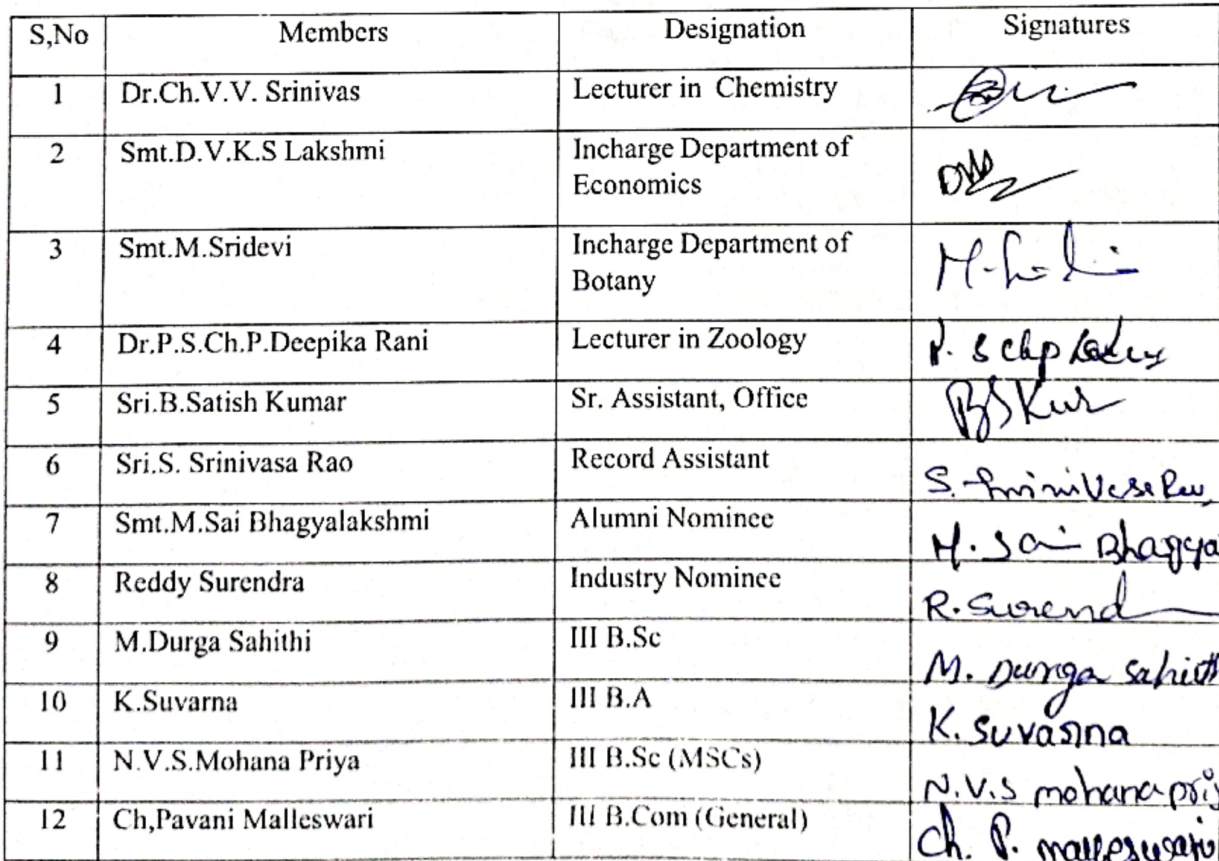 S,No Members Designation Signatures
1 Dr.Ch.V.V. Srinivas Lecturer in Chemistry
2 Smt.D.V.K.S Lakshmi Incharge Department of
Economics
3 Smt.M.Sridevi Incharge Department of
Botany
4 Dr.P.S.Ch.P.Deepika Rani Lecturer in Zoology
5 Sri.B.Satish Kumar Sr. Assistant, Office
6 Sri.S. Srinivasa Rao Record Assistant
7 Smt.M.Sai Bhagyalakshmi Alumni Nominee M. Sai Bhagya
8 Reddy Surendra Industry Nominee R. Surend
9 M.Durga Sahithi III B.Sc M. Durga Sahith
10 K.Suvarna III B.A K. Suvarna
11 N.V.S.Mohana Priya III B.Sc (MSCs) N.V.S mohana priy
12 Ch,Pavani Malleswari III B.Com (General) Ch. P. malleswari